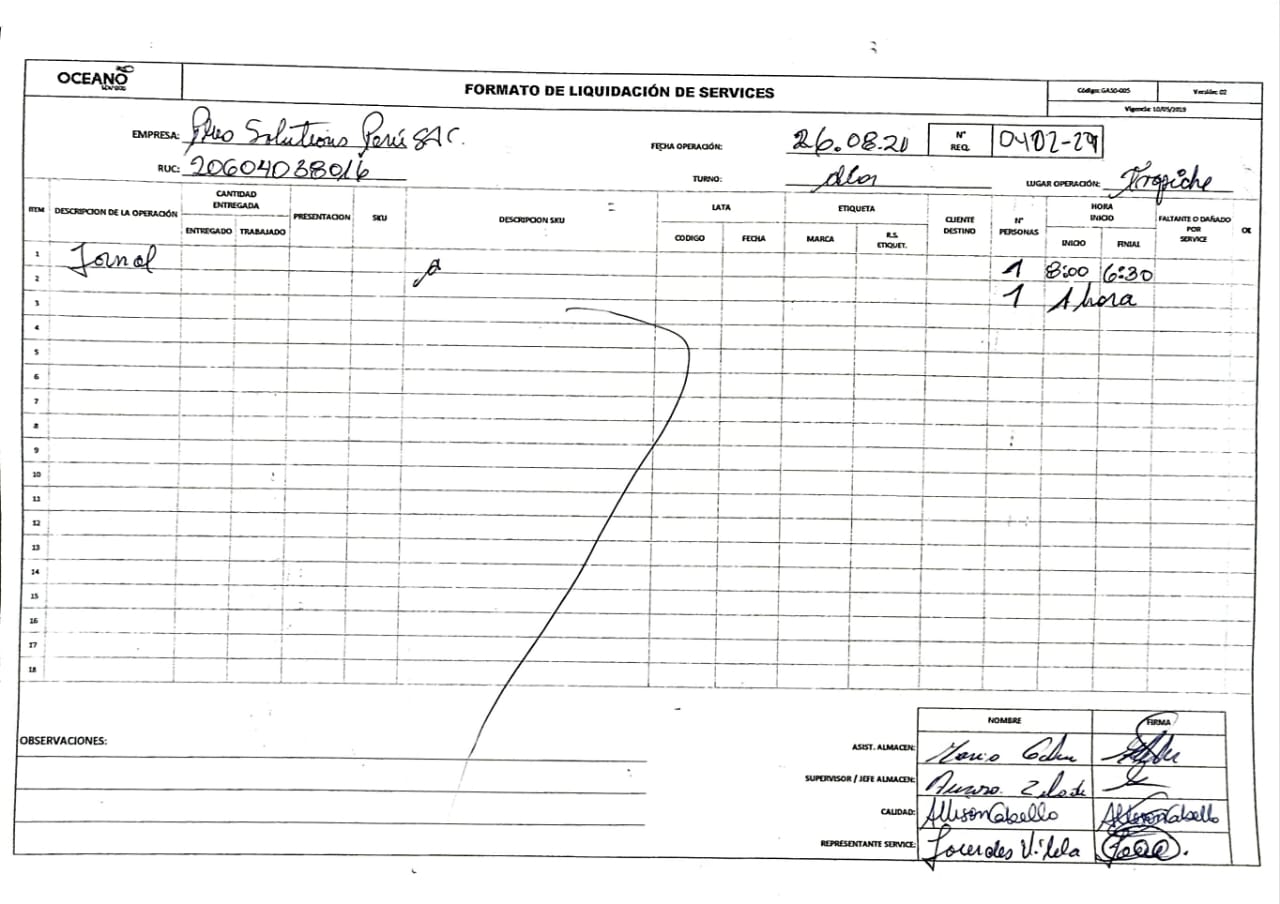 OCEANO
FORMATO DE LIQUIDACIÓN DE SERVICES
Código: GASO-005
Versión: 02
Vigencia: 10/05/2019
EMPRESA: Solutions Perú SAC.
FECHA OPERACIÓN: 26.08.21
N° REQ. 0402-29
RUC: 20604038016
TURNO:
LUGAR OPERACIÓN: Trapiche
ITEM
DESCRIPCION DE LA OPERACIÓN
CANTIDAD ENTREGADA
ENTREGADO
TRABAJADO
PRESENTACION
SKU
DESCRIPCION SKU
LATA
CODIGO
FECHA
ETIQUETA
MARCA
R.S. ETIQUET.
CLIENTE DESTINO
N° PERSONAS
HORA INICIO
INICIO
FINIAL
FALTANTE O DAÑADO POR SERVICE
1 Jornal 1 8:00 6:30
2 1 1 hora
3
4
5
6
7
8
9
10
11
12
13
14
15
16
17
18
OBSERVACIONES:
NOMBRE
FIRMA
ASIST. ALMACEN:
SUPERVISOR / JEFE ALMACEN:
CALIDAD: Allison Cabello Allison Cabello
REPRESENTANTE SERVICE: Lourdes Vilela